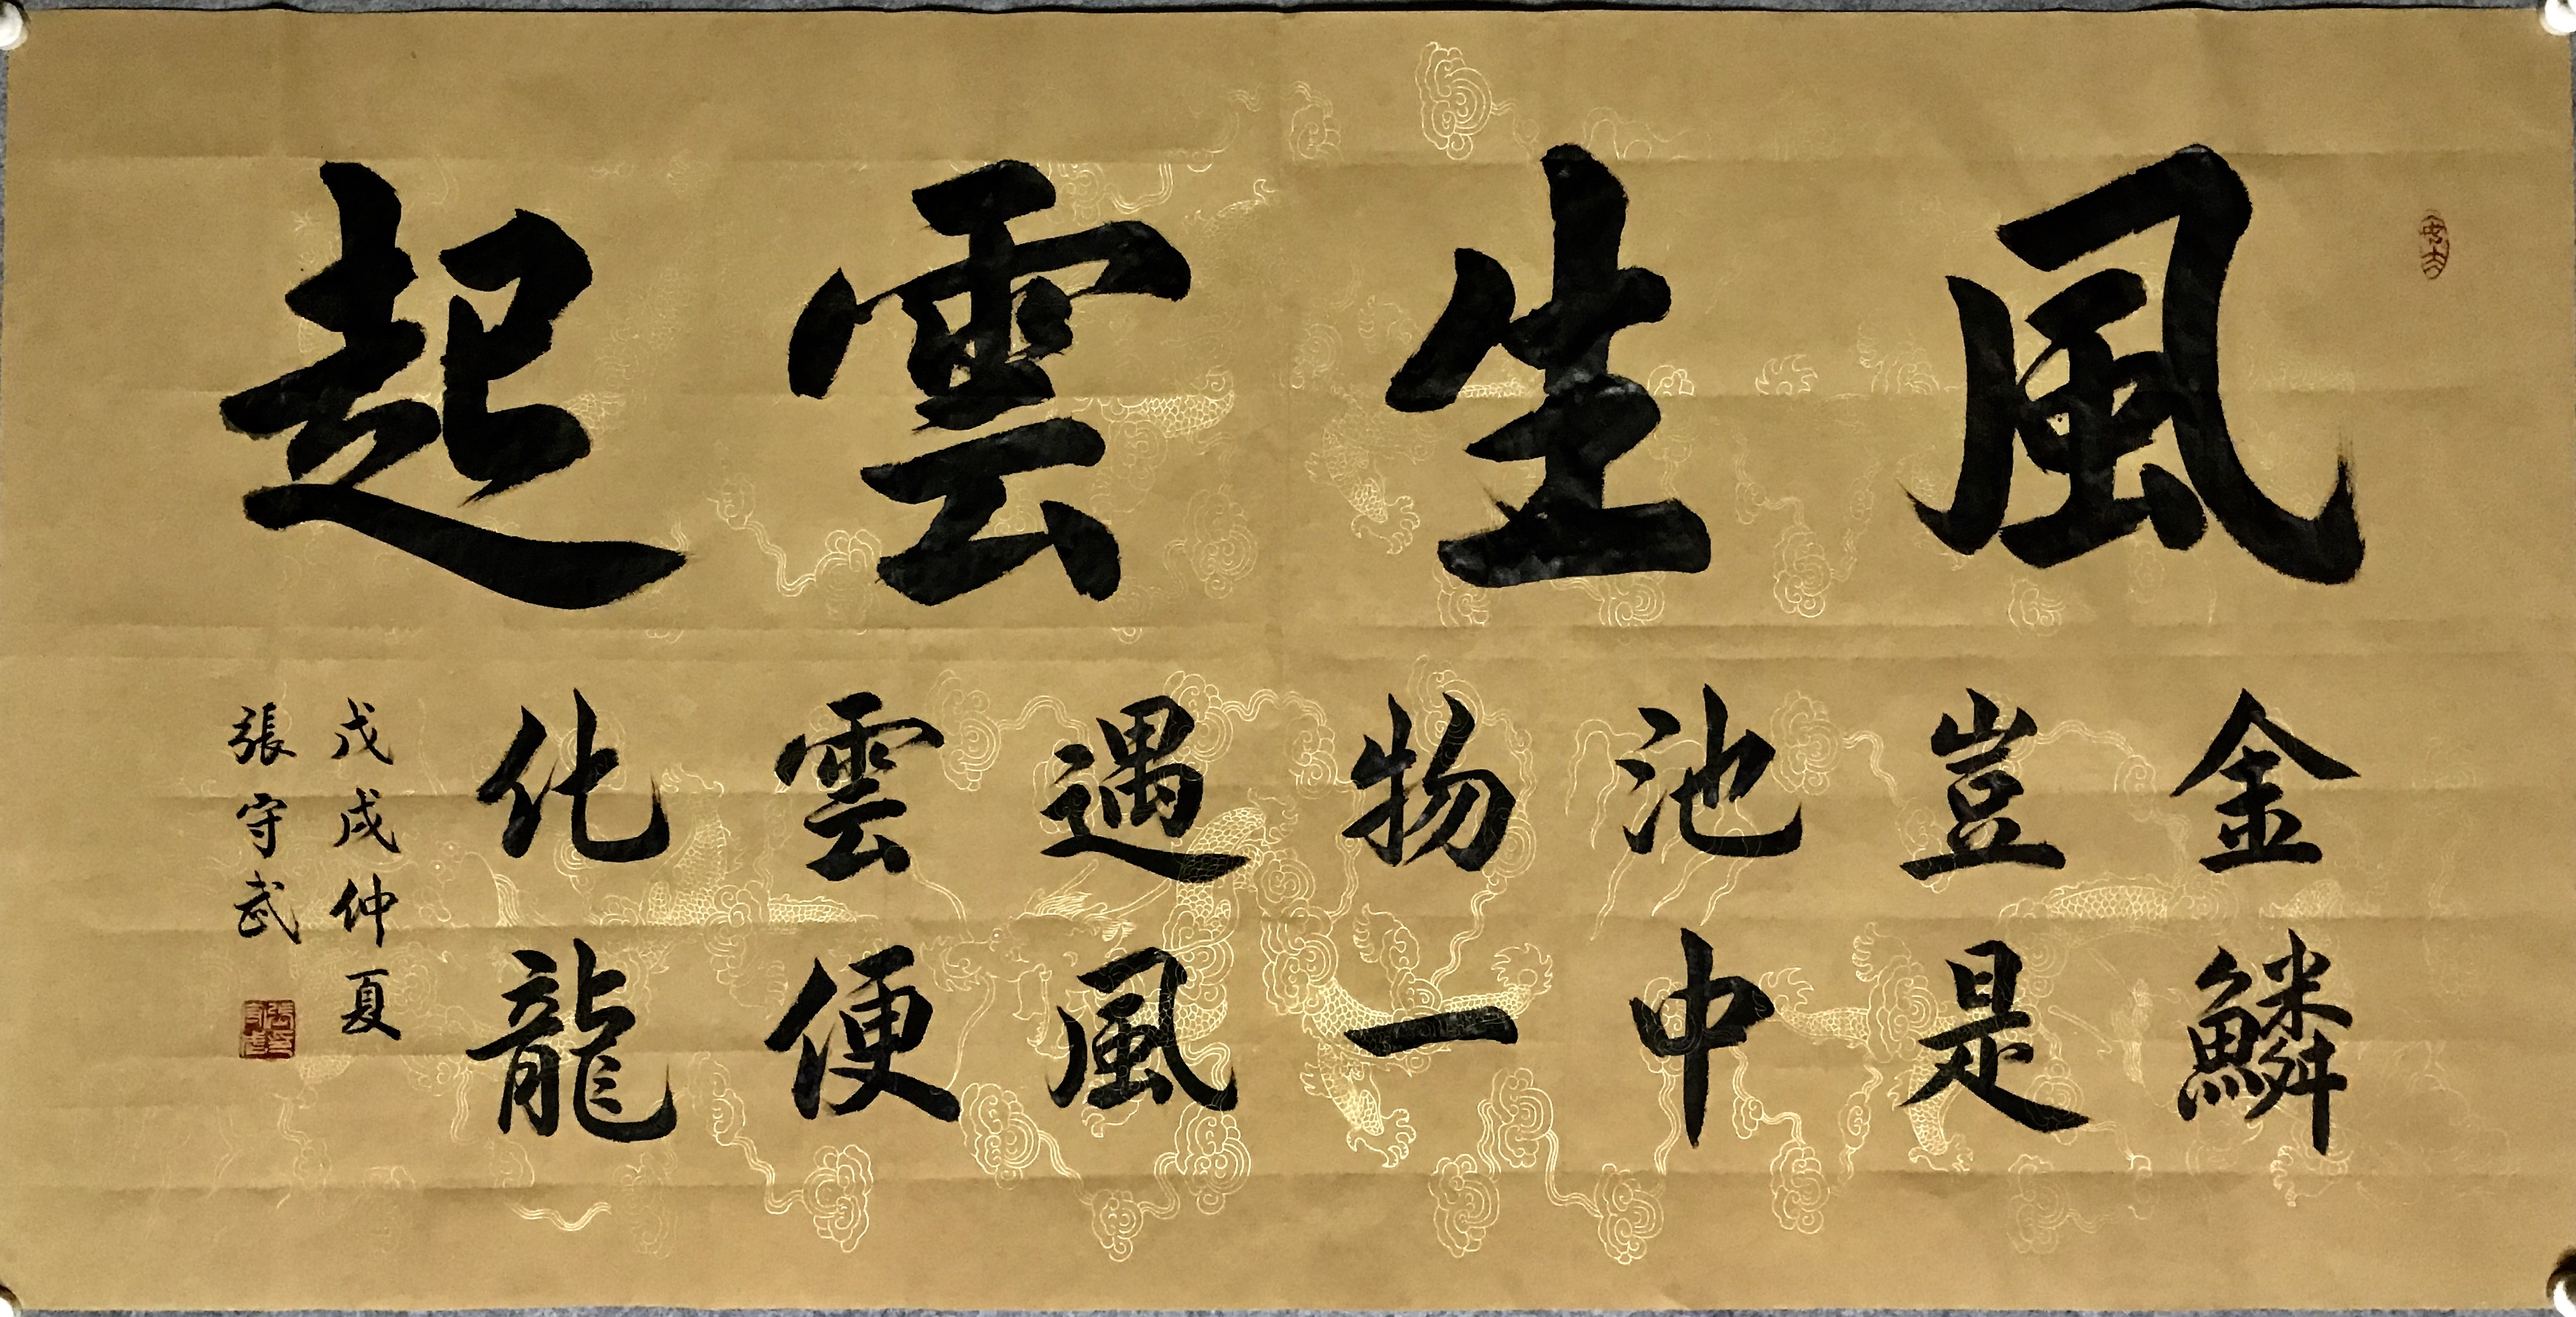 風生雲起
金鱗
豈是
池中
物一
遇風
雲便
化龍
戊戌仲夏
張守武